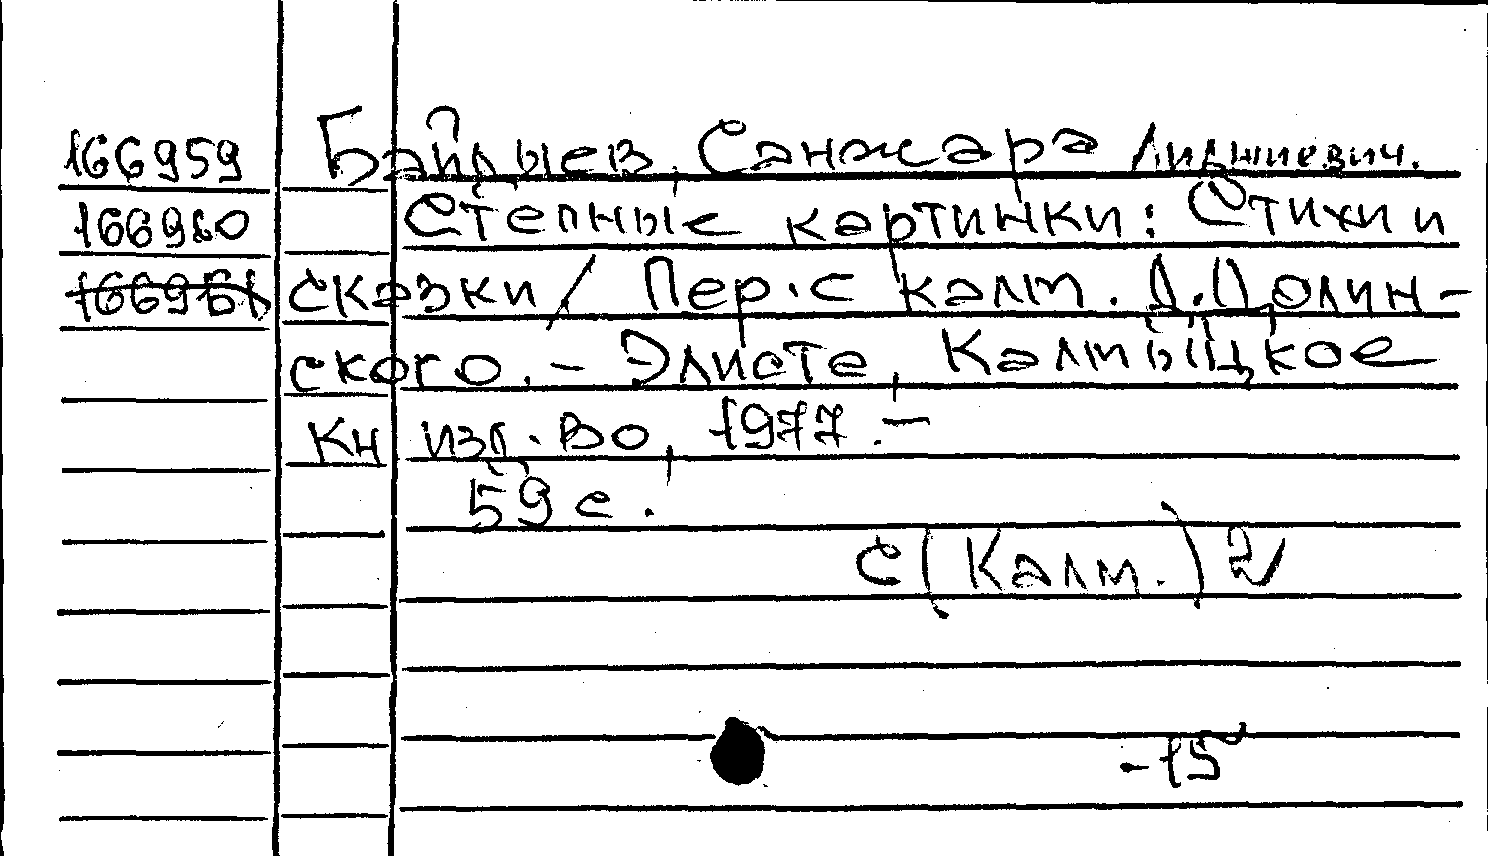 166959 Байдыев, Санжара Лиджиевич.
166960 Степные картинки: Стихи и
166961 сказки / Пер. с калм. Д. Долин-
ского. - Элиста, Калмыцкое
Кн изд. во, 1977. -
59 с.
С(Калм.)2
-15